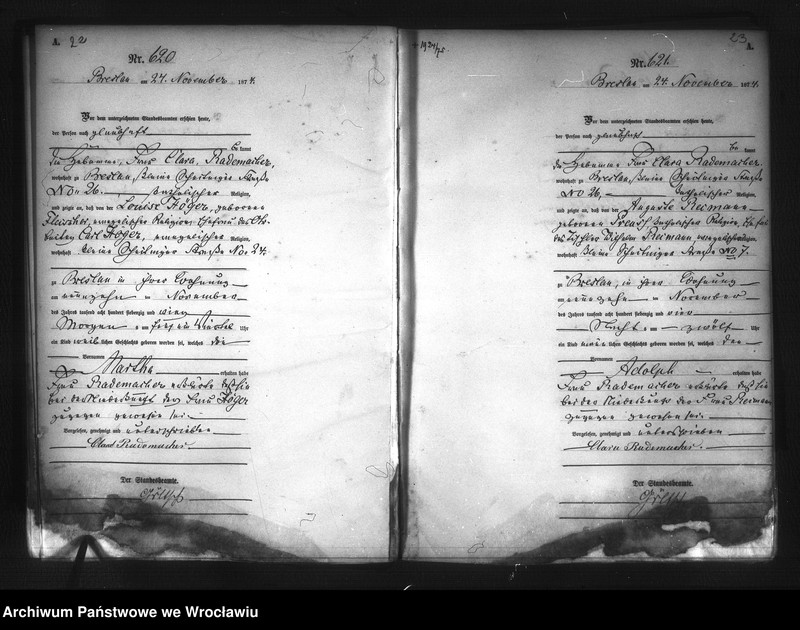 A. 22
Nr. 620
Breslau am 24. November 1874.
Vor dem unterzeichneten Standesbeamten erschien heute,
der Person nach
kannt
die Hebamme, Frau Clara Rademacher,
wohnhaft zu Breslau, kleine Scheitniger Straße
No. 26. katholischer Religion,
und zeigte an, daß von der Louise Höger, geborenen
evangelischer Religion, Ehefrau des
Carl Höger, evangelischer Religion,
wohnhaft kleine Scheitniger Straße No. 24.
zu Breslau in ihrer Wohnung
am neunzehn November
des Jahres tausend acht hundert siebenzig und vier
Morgens um fünf ein Viertel Uhr
ein Kind weiblichen Geschlechts geboren worden sei, welches den
Vornamen
Martha erhalten habe
Frau Rademacher erklärte daß sie
bei der Niederkunft der Frau Höger
zugegen gewesen sei.
Vorgelesen, genehmigt und unterschrieben
Clara Rademacher
Der Standesbeamte.
+ 1924/75
23 A.
Nr. 621
Breslau am 24. November 1874.
Vor dem unterzeichneten Standesbeamten erschien heute,
der Person nach
kannt
die Hebamme Frau Clara Rademacher
wohnhaft zu Breslau, kleine Scheitniger Straße
No 26, katholischer Religion,
und zeigte an, daß von der Auguste Reimann
geborenen katholischer Religion, Ehefrau
des Tischler Wilhelm Reimann evangelischer
wohnhaft kleine Scheitniger Straße No 7.
zu Breslau, in ihrer Wohnung
am neunzehn November
des Jahres tausend acht hundert siebenzig und vier
Nachts um zwölf Uhr
ein Kind männlichen Geschlechts geboren worden sei, welches den
Vornamen
Adolph erhalten habe
Frau Rademacher erklärte daß sie
bei der Niederkunft der Frau Reimann
zugegen gewesen sei.
Vorgelesen, genehmigt und unterschrieben
Clara Rademacher
Der Standesbeamte.
Archiwum Państwowe we Wrocławiu